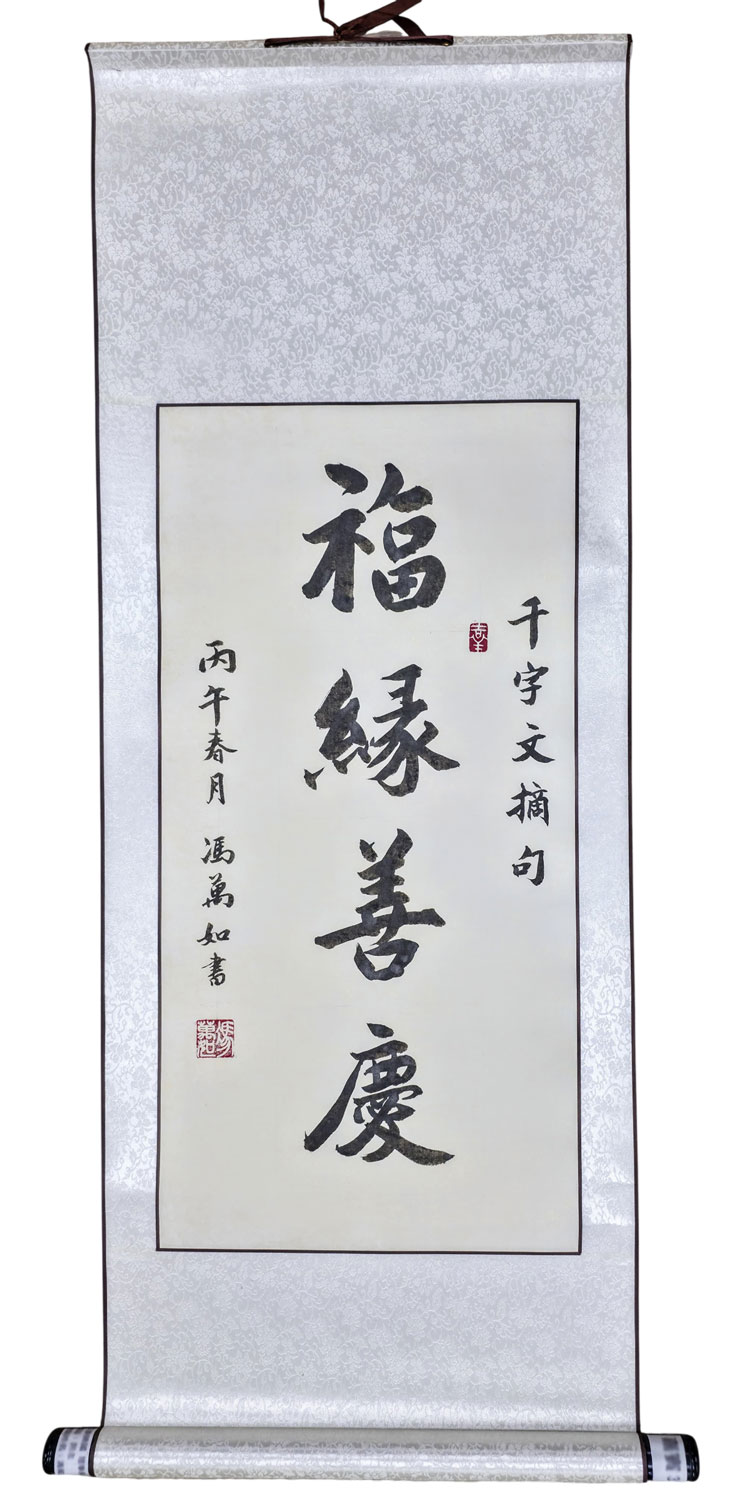 千字文摘句
福緣善慶
丙午春月 馮萬如書
馮萬如